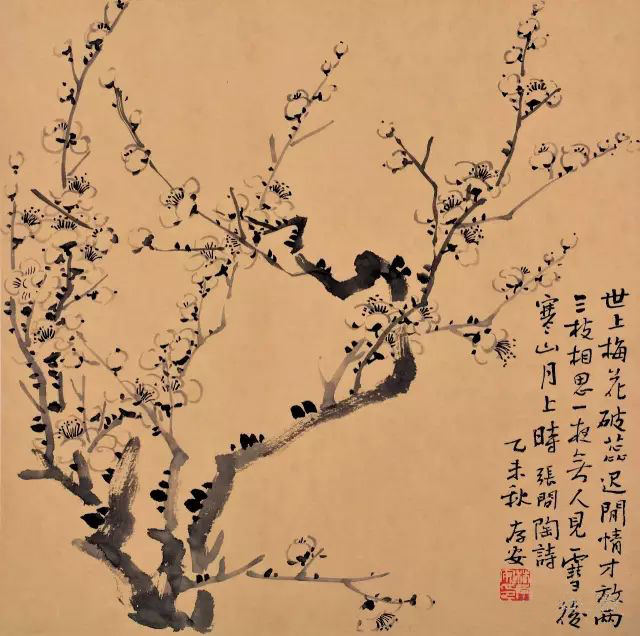 世上梅花破蕊迟閒情才放两
三枝相思一夜无人见雪後
寒山月上時張問陶詩
乙未秋存安